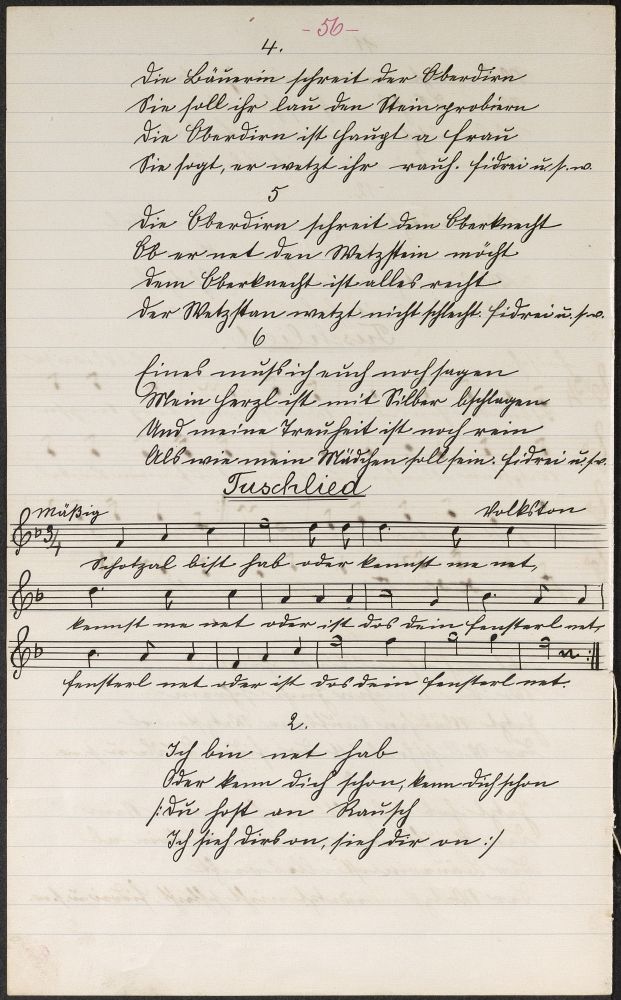 - 56 -
4.
Die Bäuerin schreit der Oberdirn
Sie soll ihr lau den Stein probiern
Die Oberdirn ist haupt a Frau
Sie sagt, er wetzt ihr rauh. Fidrei u. s. w.
5
Die Oberdirn schreit dem Oberknecht
Ob er net den Wetzstein möcht
Dem Oberknecht ist alles recht
Der Wetzstan wetzt nicht schlecht. Fidrei u. s. w.
6
Eines muß ich euch noch sagen
Mein Herzl ist mit Silber bschlagen
Und meine Treuheit ist noch rein
Als wie mein Mädchen soll sein. Fidrei u. s. w.
Tuschlied
Mäßig Volkston
3/4
Schotzal bist hab oder kennst me net,
kennst me net oder ist das dein Fensterl net,
Fensterl net oder ist das dein Fensterl net.
2.
Ich bin net hab
Oder kenn dich schon, kenn dich schon
/: Du host an Rausch
Ich sieh dirs on, sieh dir on :/